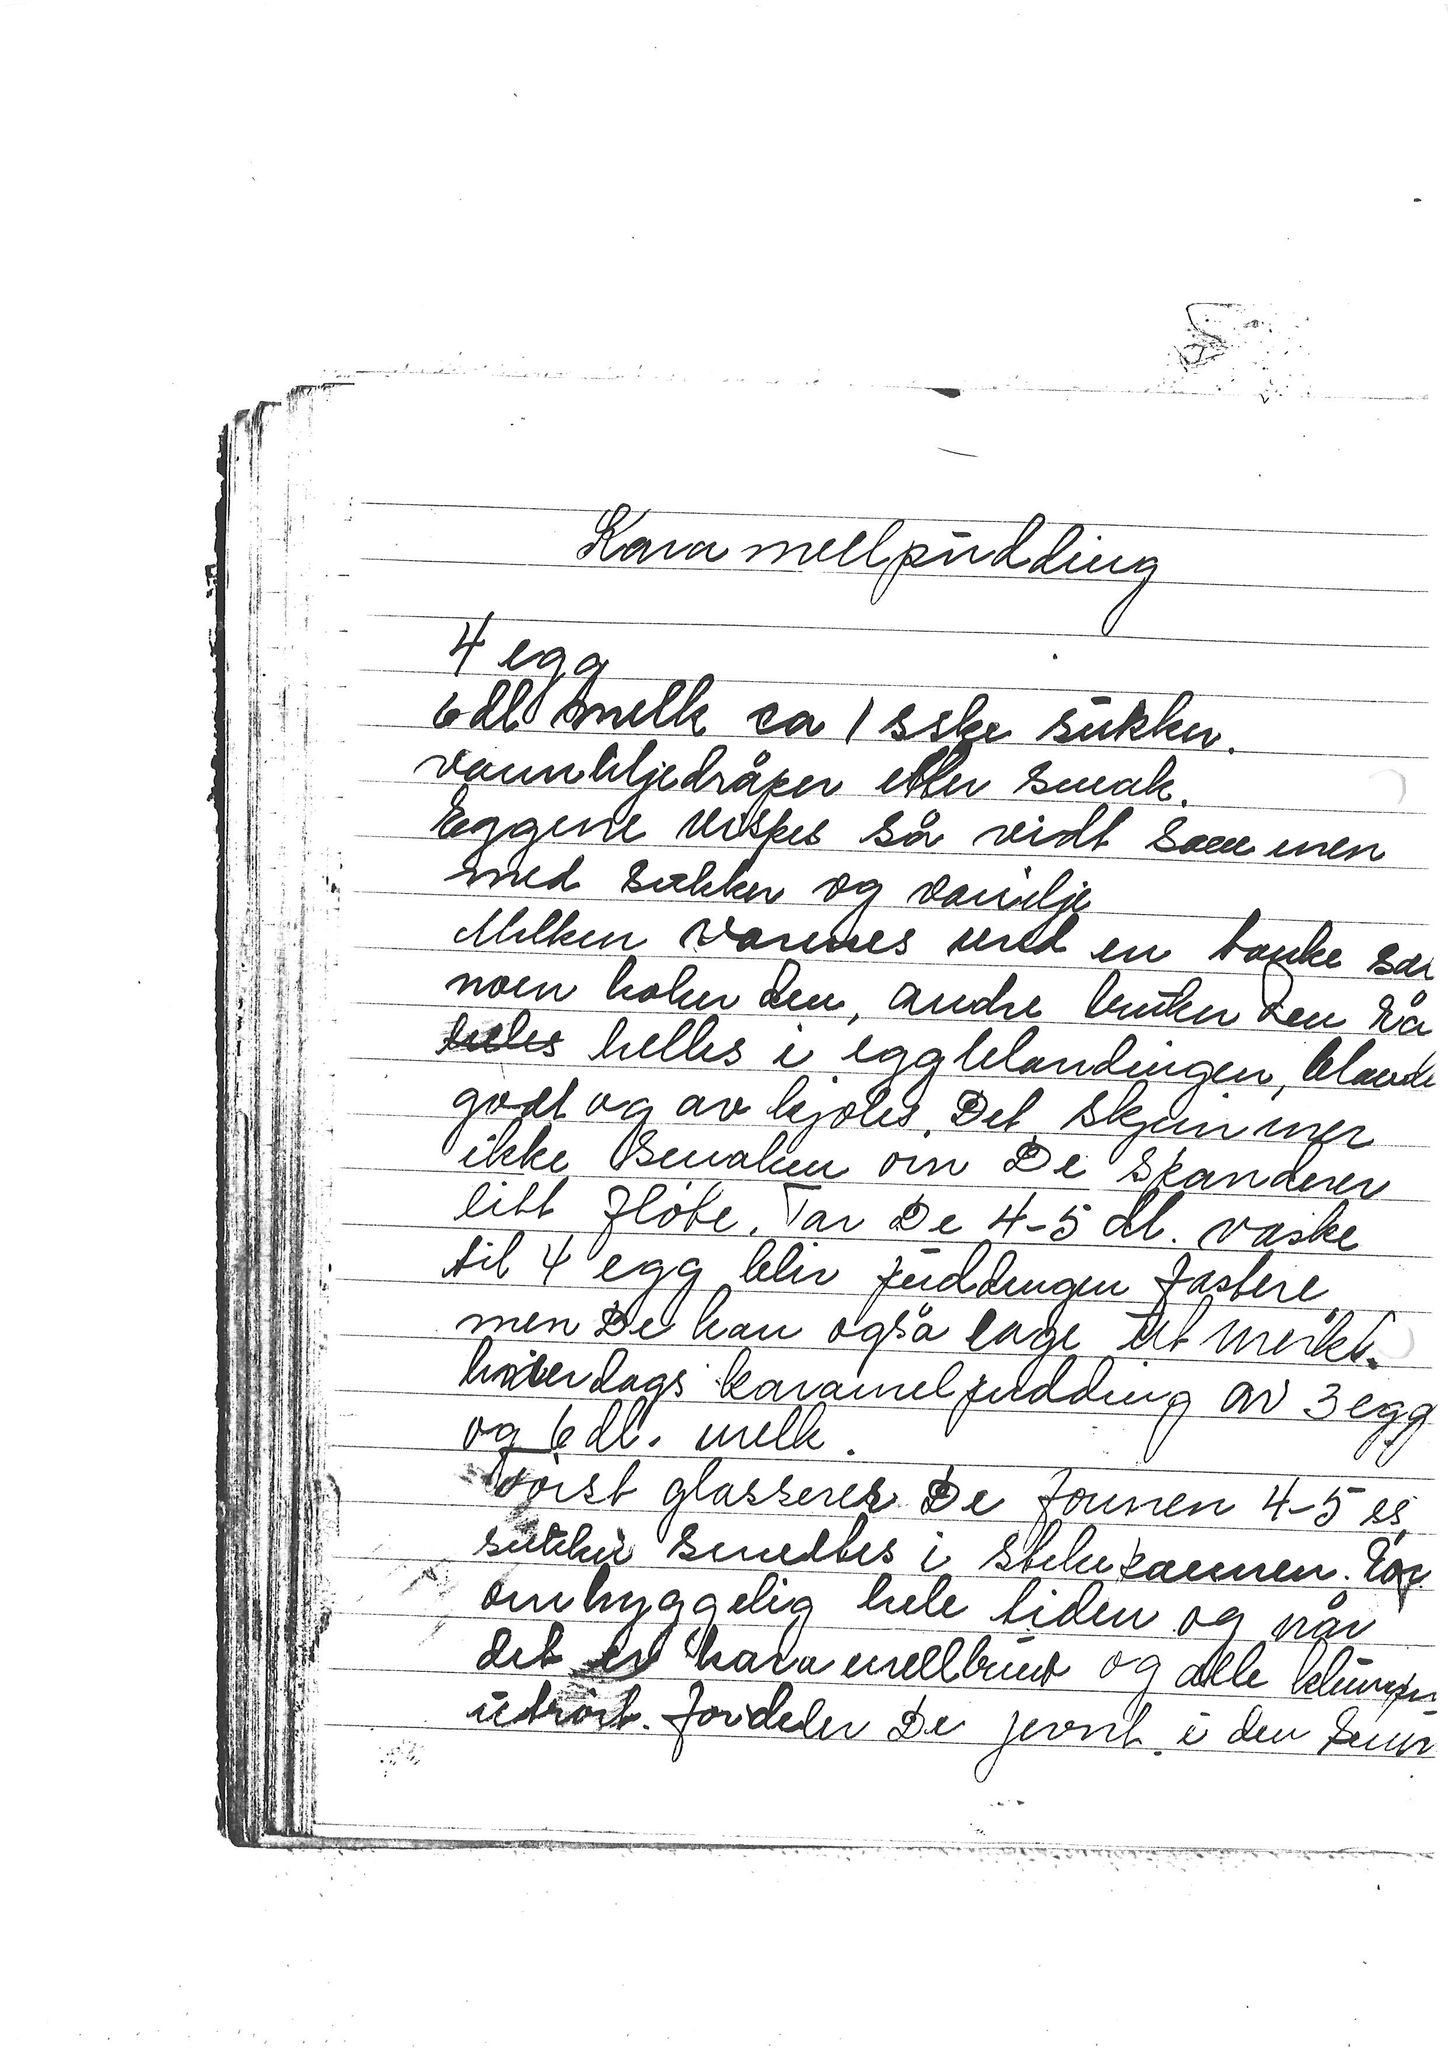 Karamellpudding
4 egg
6 dl melk ca 1 sske sukker.
vannliljedråper etter smak.
Eggene vispes så vidt sammen
med sukker og vanilje
Melken varmes und en tanke
noen koker den, andre bruker den rå
helles i eggblandingen, blande
godt og avkjøles. Det skjemmer
ikke smaken om De spanderer
litt fløte. Tar De 4-5 dl. væske
til 4 egg blir puddingen fastere
men De kan også lage utmerket
hverdags karamelpudding av 3 egg
og 6 dl. melk.
Først glasserer De formen 4-5 ss
sukker smeltes i stekepannen. Rør
omhyggelig hele tiden og når
det er karamellbrunt og alle klumper
utrørt. fordeler De jevnt i den